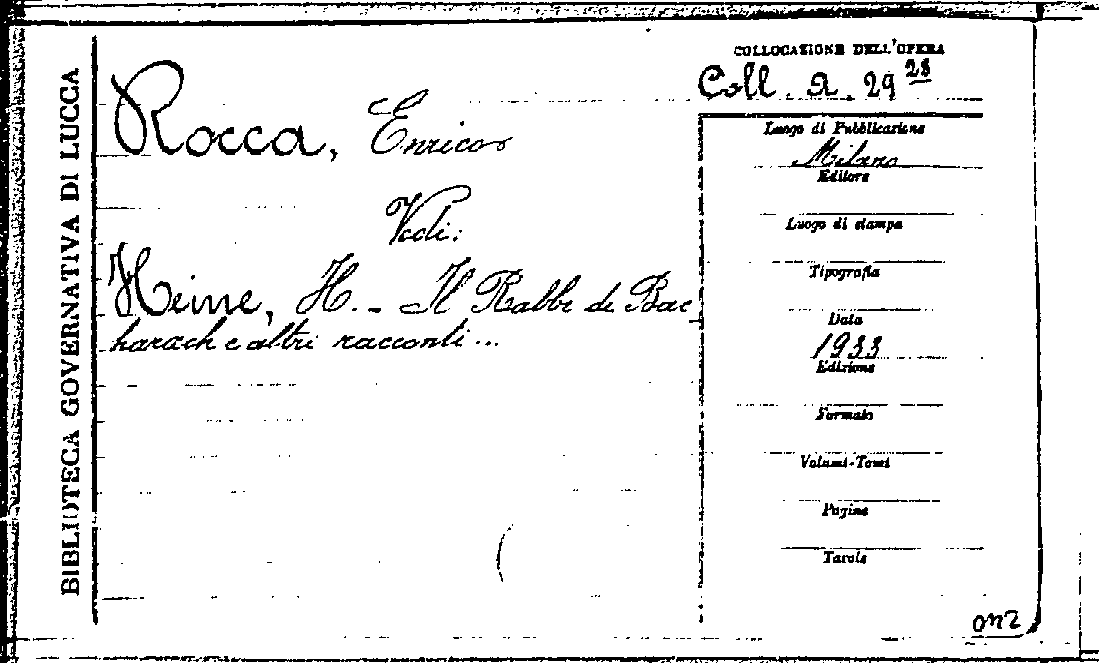 BIBLIOTECA GOVERNATIVA DI LUCCA
Rocca, Enrico
Vedi:
Heine, H. - Il Rabbi di Bac
harach e altri racconti...
COLLOCAZIONE DELL'OPERA
Coll. A. 29 28
Luogo di Pubblicazione
Milano
Editore
Luogo di stampa
Tipografia
Data
1933
Edizione
Formato
Volumi-Tomi
Pagine
Tavole